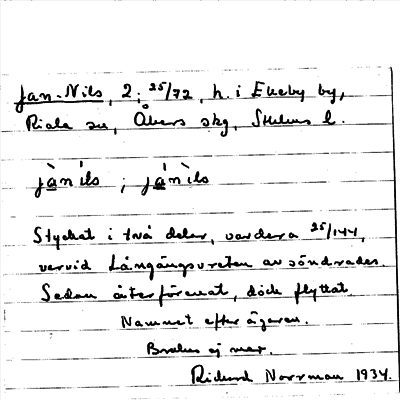 Jan-Nils, 2; 25/72, h. i Ekeby by,
Riala sn, Åkers skg, Sthlms l.
jànils ; jánìls
Styckat i två delar, vardera 25/144,
varvid Långängsvreten avsöndrades.
Sedan återförenat, dock flyttat.
Namnet efter ägaren.
Brukas ej mer.
Rickard Norrman 1934.